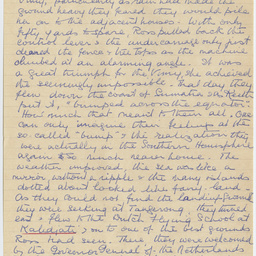 Vimy, particularly as rain had made the
ground heavy they feared they would pile
her on to the adjacent houses. With only
fifty yards to spare, Ross pulled back the
control lever & the undercarriage only just
the fence & the tops as the machine
climbed at an alarming angle. It was
a great triumph for the Vimy, she achieved
the seemingly impossible. That day they
flew down the coast of Sumatra as Keith
put it, "bumped across the equator".
How much that meant to them all, one
can only imagine their feelings at the
so called "bump" & the realisation they
were actually in the Southern Hemisphere
again & so much nearer home. The
weather improved, the sea was like a
mirror without a ripple & the many islands
dotted about looked like fairy land.
As they could not find the landing place
they were seeking at they turned
east & flew to the Dutch Flying School at
Kalidjati & on to one of the best grounds
Ross had seen. There they were welcomed
by the Governor General of the Netherlands